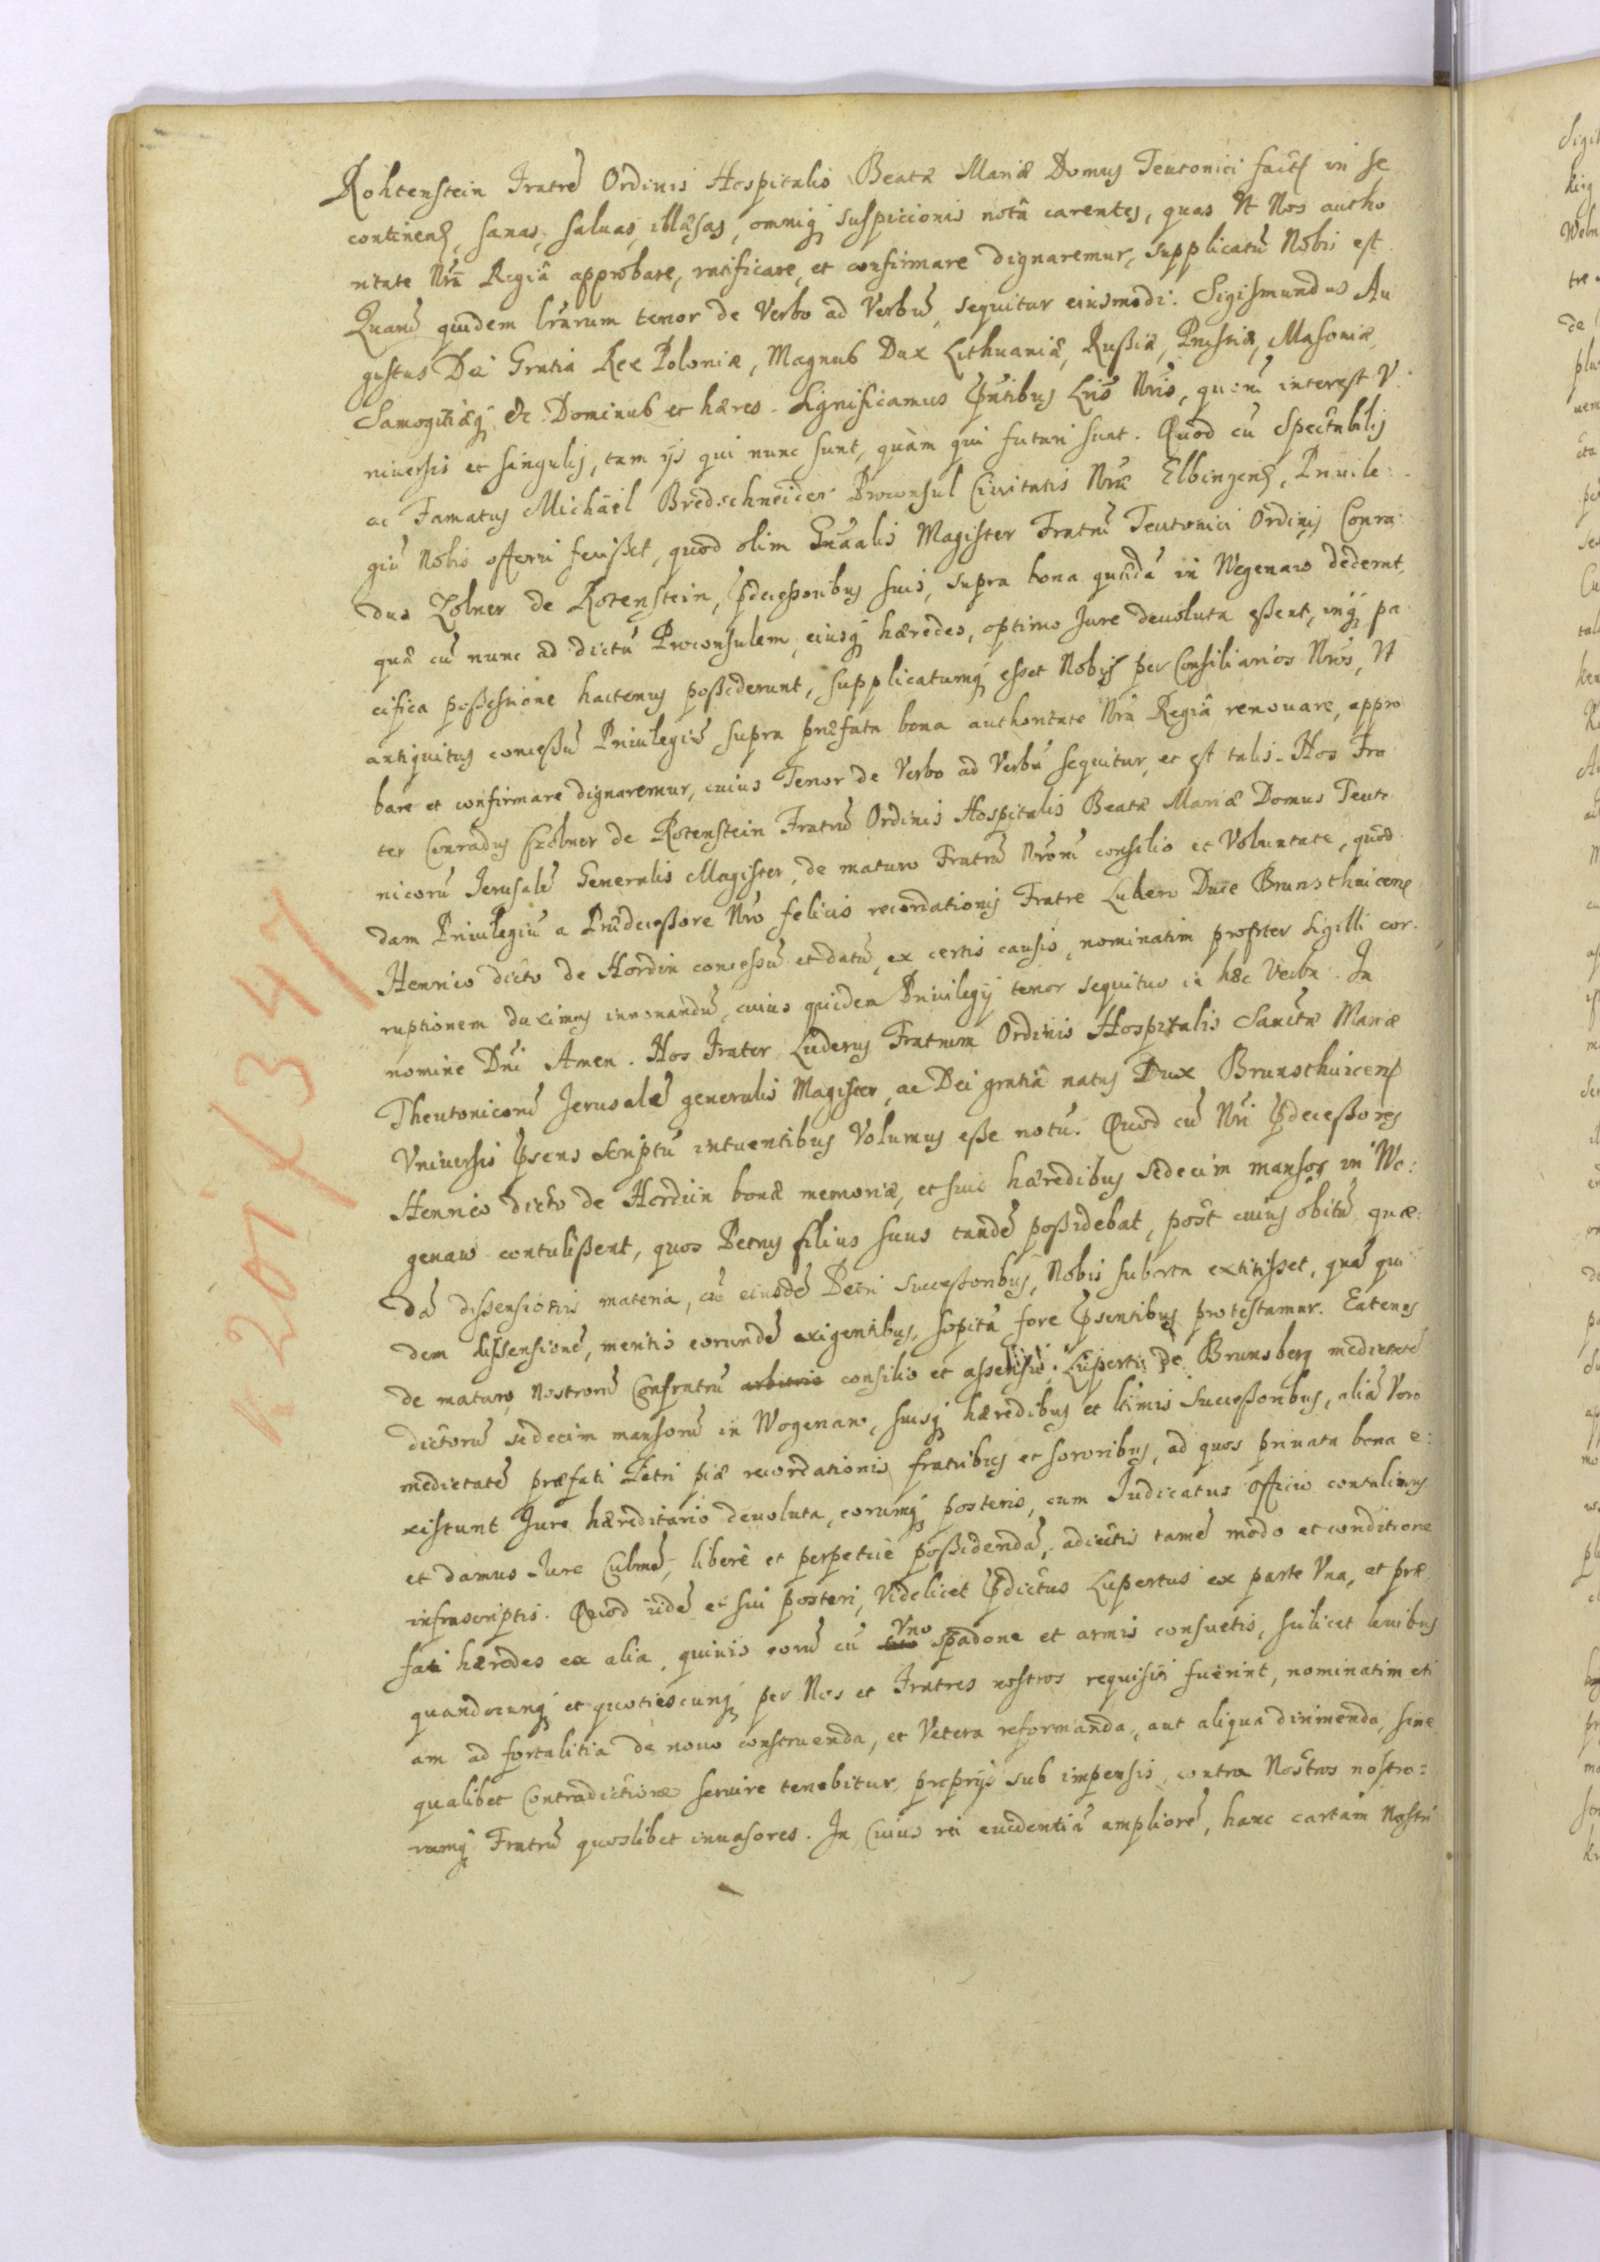 Rohtenstein Fratrē Ordinis Hospitalis Beatæ Mariæ Domus Teutonici fact in se
continens, sanas, saluas, illæsas, omniq; suspicionis notâ carentes, quas Vt Nos autho
ritate Nrā Regiâ approbare, ratificare, et confirmare dignaremur, supplicatū Nobis est.
Quarū quidem lrārum tenor de Verbo ad Verbū, sequitur eiusmodi. Sigismundus Au
gustus Dei Gratia Rex Poloniæ, Magnus Dux Lithuaniæ, Rußiæ, Prusiæ, Masoniæ,
Samogitiæq; &c Dominus et hæres. Significamus Pntibus Lris Nris, quorū interest V:
niuersis et singulis, tam ijs qui nunc sunt, quàm qui futuri sunt. Quod cū Spectabilis
ac Famatus Michäel Bredschneider Proconsul Ciuitatis Nræ Elbingens, Priuile:
giū Nobis offerri fecißet, quod olim Gnāalis Magister Fratrū Teutonici Ordinis Conra
dus Zolner de Rotenstein, Pdeceßoribus suis, supra bona quædā in Wegenaw dederat,
quæ cū nunc ad dictū Proconsulem, eiusq; hæredes, optimo Jure deuoluta eßent, inq; pa
cifica poßeßione hactenus poßiderunt, supplicatumq; esset Nobis per Consiliarios Nros, Vt
antiquitus conceßū Priuilegiū supra præfata bona authoritate Nrâ Regiâ renouare, appro
bare et confirmare dignaremur, cuius Tenor de Verbo ad Verbū sequitur, et est talis. Nos Fra
ter Conradus Czolner de Rotenstein Fratrū Ordinis Hospitalis Beatæ Mariæ Domus Teuto
nicorū Jerusalē Generalis Magister, de maturo Fratrū Nrorū consilio et Voluntate, quod
dam Priuilegiū a Prædeceßore Nro felicis recordationis Fratre Ludero Duce Brunschuicens
Henrico dicto de Hordin conceßū et datū, ex certis causis, nominatim propter Sigilli cor.
ruptionem duximus innouandū, cuius quidem Priuilegij tenor sequitur in hæc Verba. In
nomine Dni Amen. Nos Frater Luderus Fratrum Ordinis Hospitalis Sanctæ Mariæ
Theutonicorū Jerusalē generalis Magister, ac Dei gratiâ natus Dux Brunschuicens
Vniuersis Psens scriptū intuentibus Volumus eße notū. Quod cū Nri Pdeceßores
Henrico dicto de Hordiin bonæ memoriæ, et suis hæredibus sedecim mansos in We:
genaw contulißent, quos Petrus filius suus tandē poßidebat, post cuius obitū quæ:
dā dissensionis materia, cū eiusdē Petri Succeßoribus, Nobis suborta extitisset, quā qui
dem dissensionē, meritis eorundē exigentibus, sopitā fore Psentibus protestamur. Eatenus
de maturo, nostrorū Confratrū arbitrio consilio et assensu: Luperti de Brunsberg medietatē
dictorū sedecim mansorū in Wogenaw, suisq; hæredibus et ltimis Succeßoribus, aliā Vero
medietatē præfati Petri piæ recordationis fratribus et sororibus, ad quos priuata bona e:
xistunt Jure hæreditario deuoluta, eorumq; posteris, cum Iudicatus officio contulimus
et damus Jure Culmē, liberè et perpetuè poßidendā, adiectis tamē modo et conditione
infrascriptis. Quod iidē et sui posteri, Videlicet Pdictus Lupertus ex parte Vna, et præ
fati hæredes ex alia, quiuis eorū cū Vno spadone et armis consuetis, scilicet leuibus
quandocunq; et quotiescunq; per Nos et Fratres nostros requisiti fuerint, nominatim eti
am ad fortalitia de nouo construenda, et Vetera reformanda, aut aliqua dirimenda, sine
qualibet Contradictione seruire tenebitur, proprijs sub impensis, contra Nostros nostro:
rumq; Fratrū quoslibet inuasores. In Cuius rei euidentiā ampliorē, hanc cartam Nostri